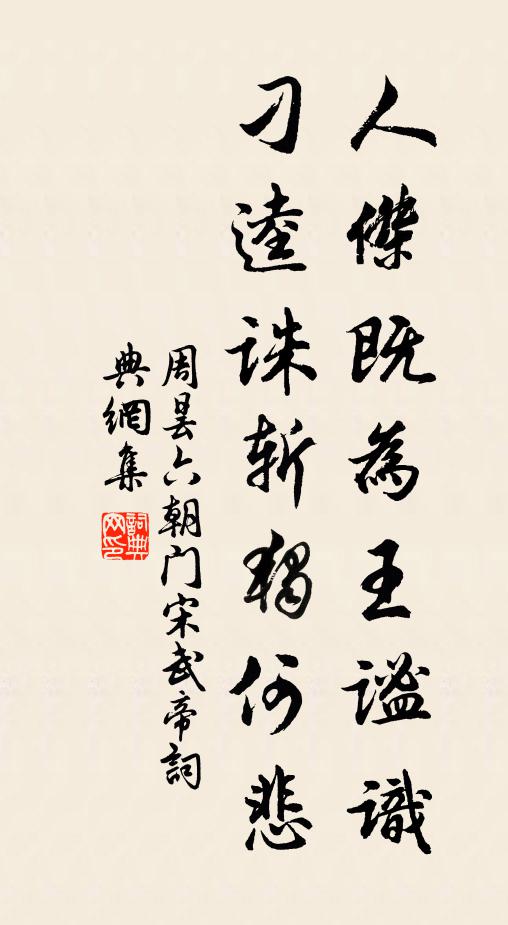 人傑既為王謐識
刁逵誅斬獨何悲
周昙六朝门宋武帝詞
典網集
詞典网印